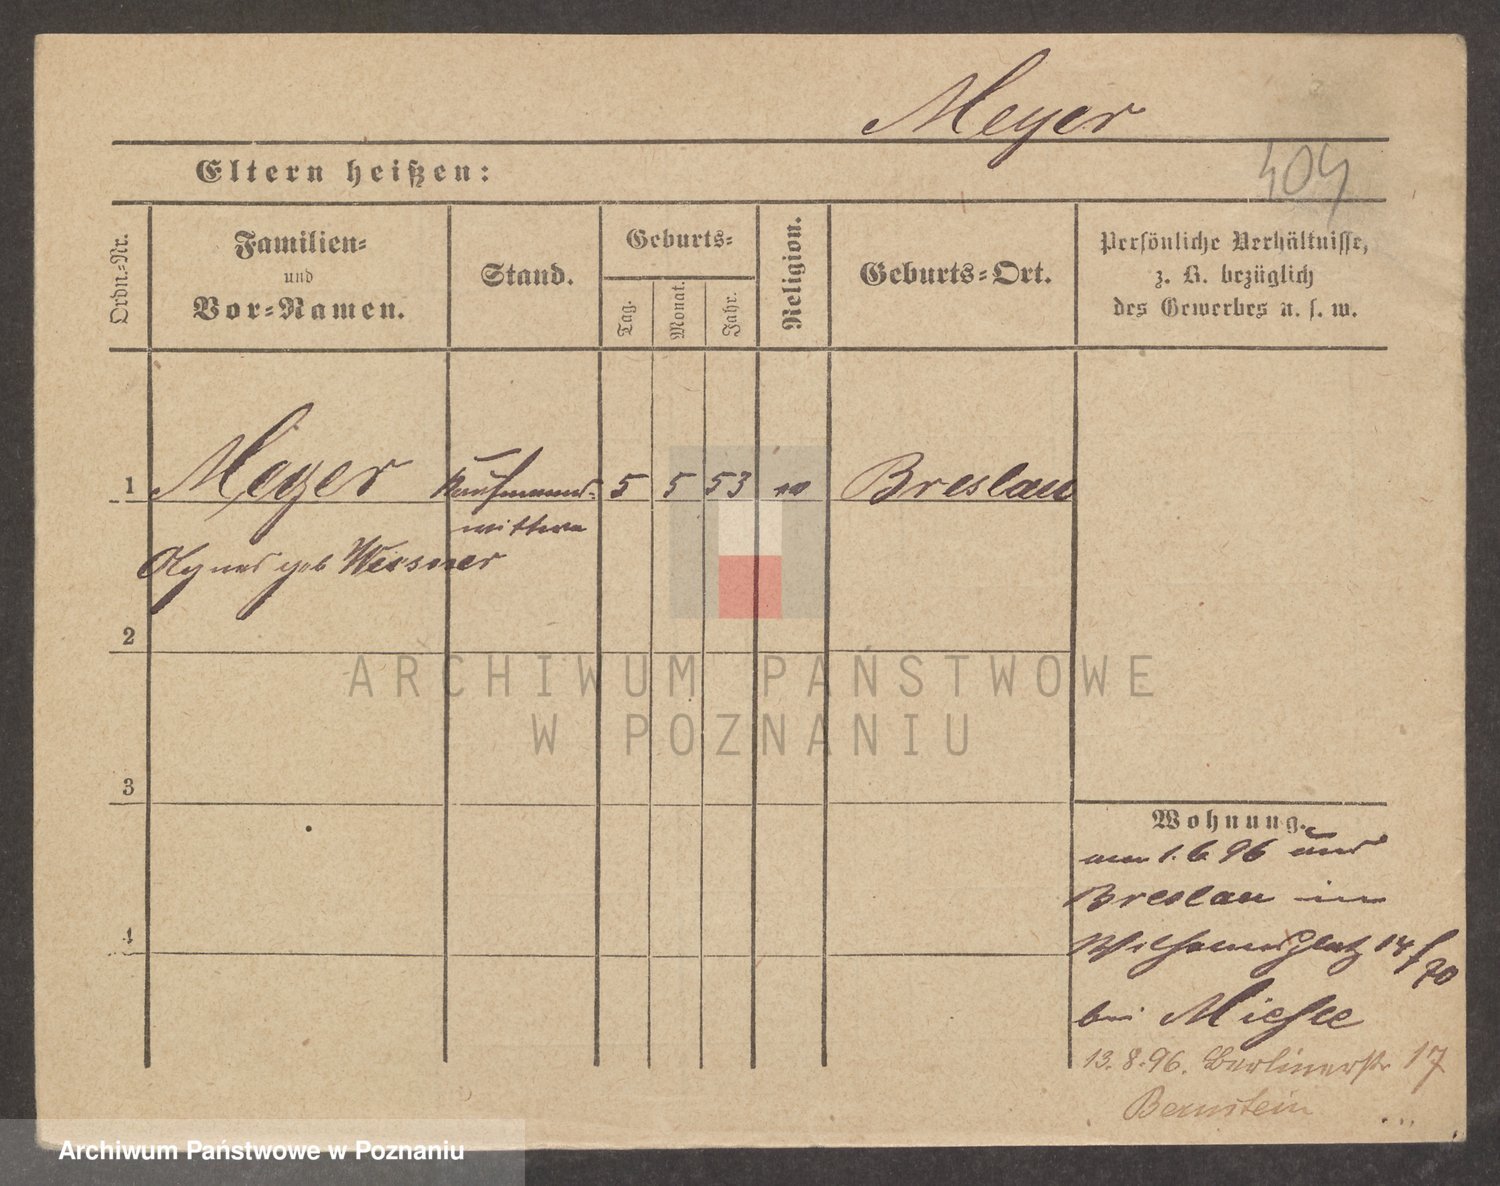 Meyer
404
Eltern heißen:
Ordn.-Nr.
Familien-
und
Vor-Namen.
Stand.
Geburts-
Tag.
Monat.
Jahr.
Religion.
Geburts-Ort.
Persönliche Verhältnisse,
z. B. bezüglich
des Gewerbes u. s. w.
1 Meyer Kaufmanns- 5 5 53 Breslau
wittwe
Agnes geb Wissner
2
3
4
Wohnung.
am 1. 6 96 aus
Breslau in
Wilhelmsplatz 14
bei Miehle
13. 8. 96. Berlinerstr 17
Bernstein
ARCHIWUM PAŃSTWOWE
W POZNANIU
Archiwum Państwowe w Poznaniu